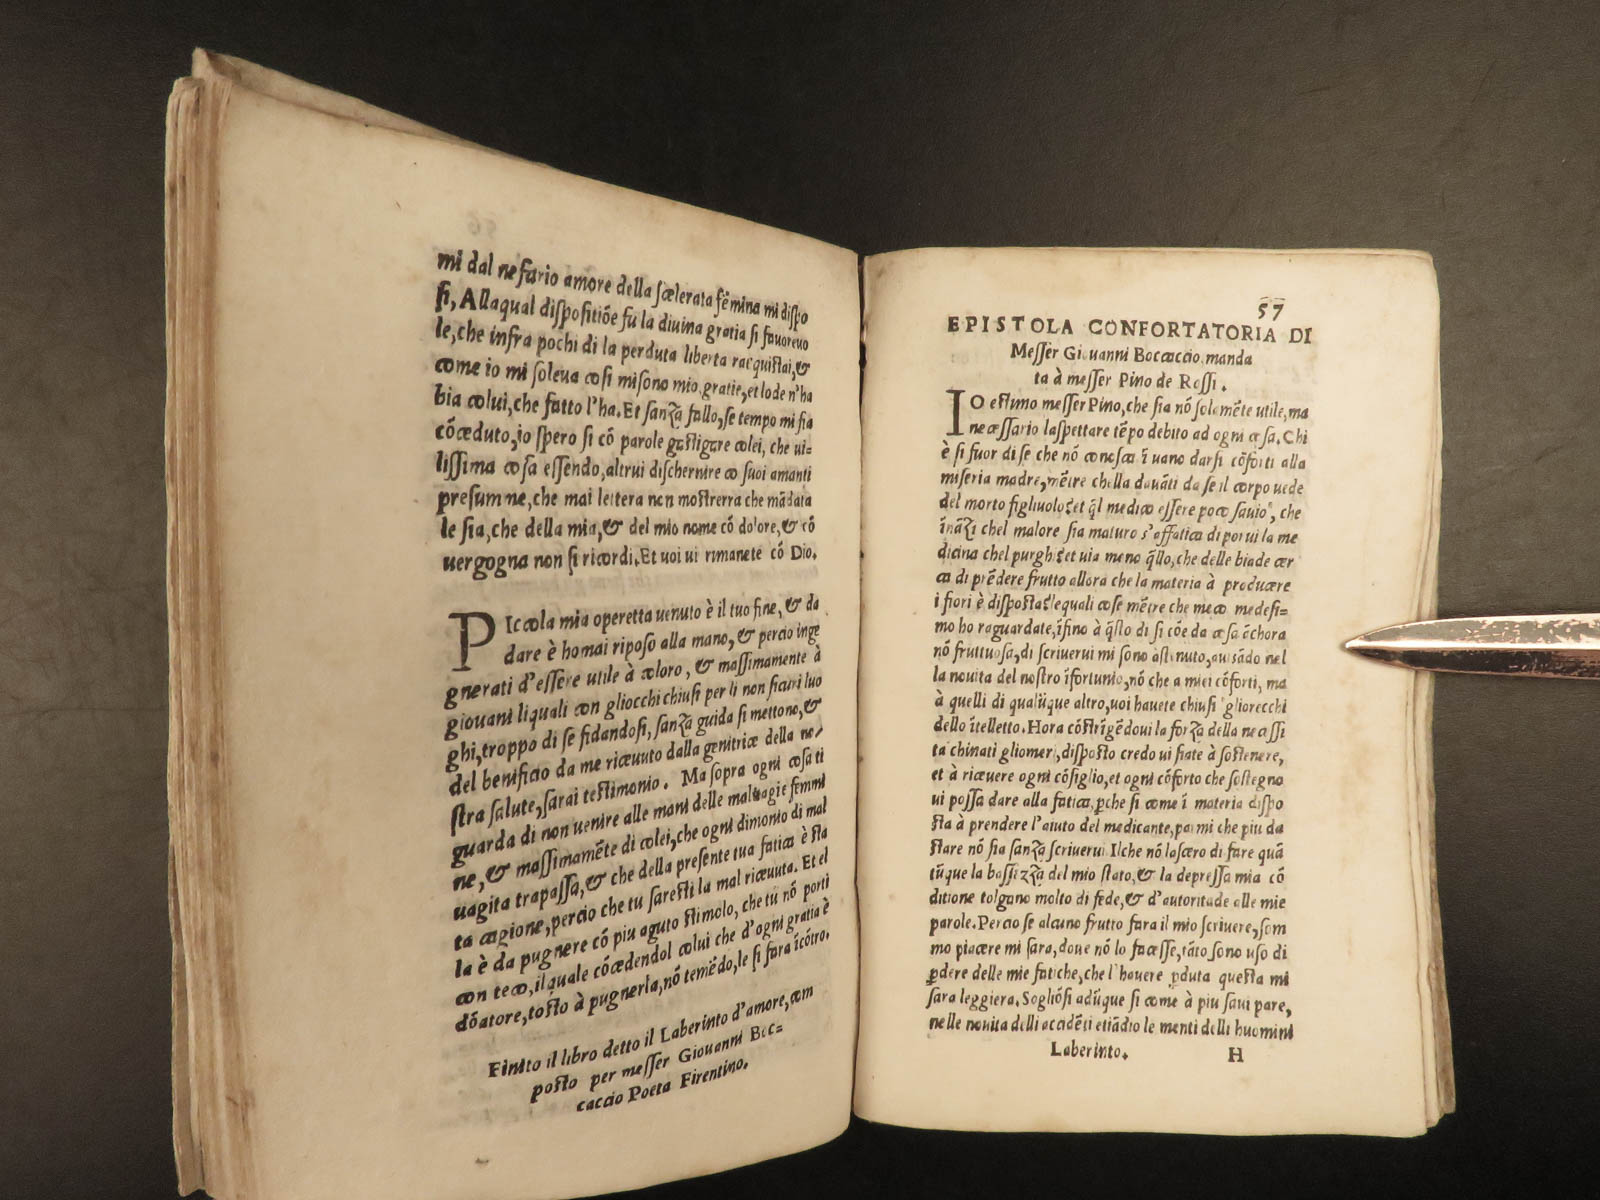 mi dal nefario amore della scelerata femina mi dispo
si, Allaqual dispositiõe fu la diuina gratia si fauoreuo
le, che infra pochi di la perduta liberta racquistai, &
come io mi soleua cosi mi sono mio. gratie, et lode n'ha
bia colui, che fatto l'ha. Et sanza fallo, se tempo mi fia
cõceduto, io spero si cõ parole gastigare colei, che ui=
lissima cosa essendo, altrui dischernire co suoi amanti
presumme, che mai lettera non mostrerra che mãdata
le sia, che della mia, & del mio nome cõ dolore, & cõ
uergogna non si ricordi. Et uoi ui rimanete cõ Dio.
PIccola mia operetta uenuto è il tuo fine, & da
dare è homai riposo alla mano, & percio inge
gnerati d'essere utile à coloro, & massimamente à
giouani liquali con gliocchi chiusi per li non sicuri luo
ghi, troppo di se fidandosi, sanza guida si mettono, &
del benificio da me riceuuto dalla genitrice della no/
stra salute, sarai testimonio. Ma sopra ogni cosa ti
guarda di non uenire alle mani delle maluagie femmi
ne, & massimamẽte di colei, che ogni dimonio di mal
uagita trapassa, & che della presente tua fatica è sta
ta cagione, percio che tu saresti la mal riceuuta. Et el
la è da pugnere cõ piu aguto stimolo, che tu nõ porti
con teco, il quale cõcedendol colui che d'ogni gratia è
dõatore, tosto à pugnerla, nõ temẽdo, le si fara icõtro.
Finito il libro detto il Laberinto d'amore, com
posto per messer Giouanni Boc=
caccio Poeta Firentino.
57
EPISTOLA CONFORTATORIA DI
Messer Giouanni Boccaccio, manda
ta à messer Pino de Rossi.
IO estimo messer Pino, che sia nõ solamẽte utile, ma
necessario laspettare tẽpo debito ad ogni cosa. Chi
è si fuor di se che nõ conosca ĩ uano darsi cõforti alla
miseria madre, mẽtre chella dauãti da se il corpo uede
del morto figliuolo: et q̃l medico essere poco sauio, che
inãzi chel malore sia maturo s'affatica di porui la me
dicina chel purghi: et uia meno q̃llo, che delle biade cer
ca di prẽdere frutto allora che la materia à producere
i fiori è disposta: lequali cose mẽtre che meco medesi=
mo ho raguardate, ĩfino à q̃sto di si cõe da cosa ãchora
nõ fruttuosa, di scriuerui mi sono astenuto, auisãdo nel
la nouita del uostro ĩfortunio, nõ che a miei cõforti, ma
à quelli di qualũque altro, uoi hauete chiusi gliorecchi
dello ĩtelletto. Hora cõstrĩgẽdoui la forza della necessi
ta chinati gliomeri, disposto credo ui siate à sostenere,
et à riceuere ogni cõsiglio, et ogni cõforto che sostegno
ui possa dare alla fatica, ꝑche si come ĩ materia dispo
sta à prendere l'aiuto del medicante, parmi che piu da
stare nõ sia sanza scriuerui. Ilche nõ lascero di fare quã
tũque la bassezza del mio stato, & la depressa mia cõ
ditione tolgano molto di fede, & d'autoritade alle mie
parole. Percio se alcuno frutto fara il mio scriuere, som
mo piacere mi sara, doue nõ lo facesse, tãto sono uso di
ꝑdere delle mie fatiche, che l'hauere ꝑduta questa mi
sara leggiera. Sogliõsi adũque si come à piu saui pare,
nelle nouita delli accidẽti etiãdio le menti delli huomini
Laberinto. H